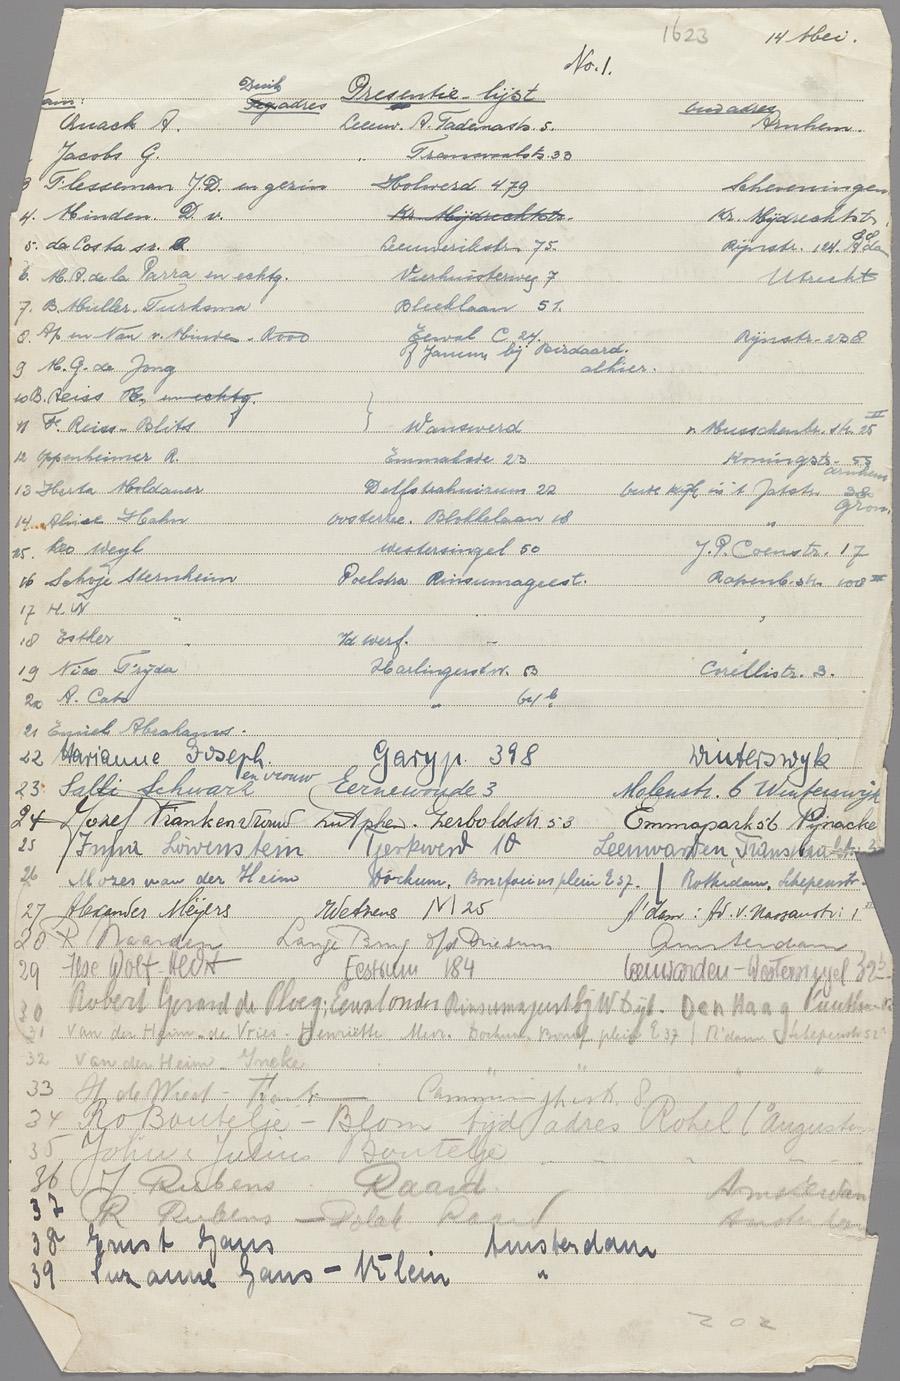 1623 14 Mei.
No. 1.
Naam: Duik Presentie-lijst oud adres
Quack A. Leeuw. A. Tademastr. 5. Arnhem.
Jacobs G. " Transvaalstr. 33
3 Flesseman J.D. en gezin Holwerd 479 Scheveningen
4. Minden. D. v. Kr. Mijdrechtstr. Kr. Mijdrechtstr.
5. da Costa sr. Leeuwerikstr. 75. Rijnstr. 124. A'dam
6. M. A. de la Parra en echtg. Vierhuisterweg 7 Utrecht
7. B. Muller. Turksma Bleeklaan 51.
8. Ap en Nan v. Minden - Rood Eewal C. 24. Rijnstr. 208
f Janum bij Birdaard.
9 M. G. de Jong alhier.
10 B. Reiss en echtg.
11 F. Reiss - Blits } Wanswerd v. Musschenbr. str. 25 II
12 Oppenheimer R. Emmakade 23 Koningstr. 55 Arnhem
13 Herta Moldauer Delfstrahuizum 22 Jatstr. 38 Gron.
14. Alice Hahn oosterse. Blokkelaan 18 "
15. Leo Weyl Westersingel 50 J. P. Coenstr. 17
16 Schoje Sternheim Poelstra Rinsumageest. Rapenb. str. 108 III
17 H. N "
18 Esther " Id werf. -
19 Nico Frijda Harlingerstrw. 53 Corellistr. 3.
20 A. Cats " 64 b
21 Emiel Abrahams.
22 Marianne Joseph. Garyp. 398 Winterswyk
en vrouw
23 Salli Schwarz Eernewoude 3 Molenstr. 6 Winterswijk
24 Jozef Franken Vrouw Zutphen. Zerboldstr. 53 Emmapark 56 Pijnacker
25 Irma Löwenstein Tjerkwerd 10 Leeuwarden, Transvaalstr. 3
26 Mozes van der Heim Dockum, Bonefaciusplein E 37. | Rotterdam, Schepenstr.
27 Alexander Meijers Wetzens M 25 A'dam: Ad. v. Nassaustr: 1
28 R Naarden Lange Brug o/d Driesum Amsterdam
29 Ilse Wolf-Hect Eestrum 184 Leeuwarden-Westersingel 32
30 Robert Gerard de Ploeg; Rinsumageest bij W Dijk. Den Haag
31 van der Heim-de Vries - Henriëtte Mevr. Dockum Bonef. plein E 37 | R'dam Schepenstr. 52
32 van der Heim - Ineke " "
33 H de Wied - 8
34 Ro Boutelje - Blom tijd adres Rohel (Augustinusga
35 Johnni Julius Boutelje
36 J Rubens Raard. Amsterdam
37 R Rubens - Polak Raard Amsterdam
38 Ernst Gans Amsterdam
39 Suzanne Gans - Klein "
202